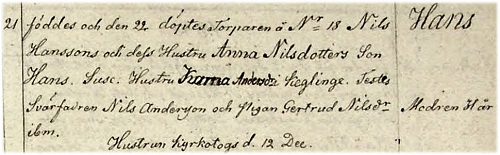 21 föddes och den 22 döptes Torparen å Nr 18 Nils Hans
Hanssons och dess Hustru Anna Nilsdotters Son
Hans. Susc. Hustru Karna Anders Kieglinge. Testes
Svärfadren Nils Andersson och Pigan Gertrud Nilsdr Modren 41 år
ibm.
Hustrun Kyrkotogs d. 12 Dec.